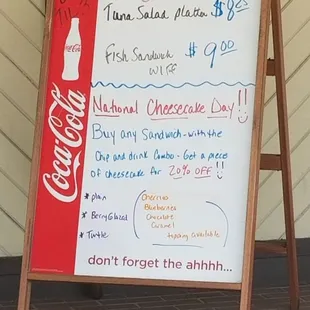 Tuna Salad platter $8
Fish Sandwich $9.00
w/ FF
Coca-Cola
National Cheesecake Day!!
Buy any Sandwich-with the
Chip and drink Combo - Get a piece
of cheesecake for 20% OFF!!
* plain
* Berry Glazed
* Turtle
Cherries
Blueberries
Chocolate
Caramel
topping available
don't forget the ahhhh...